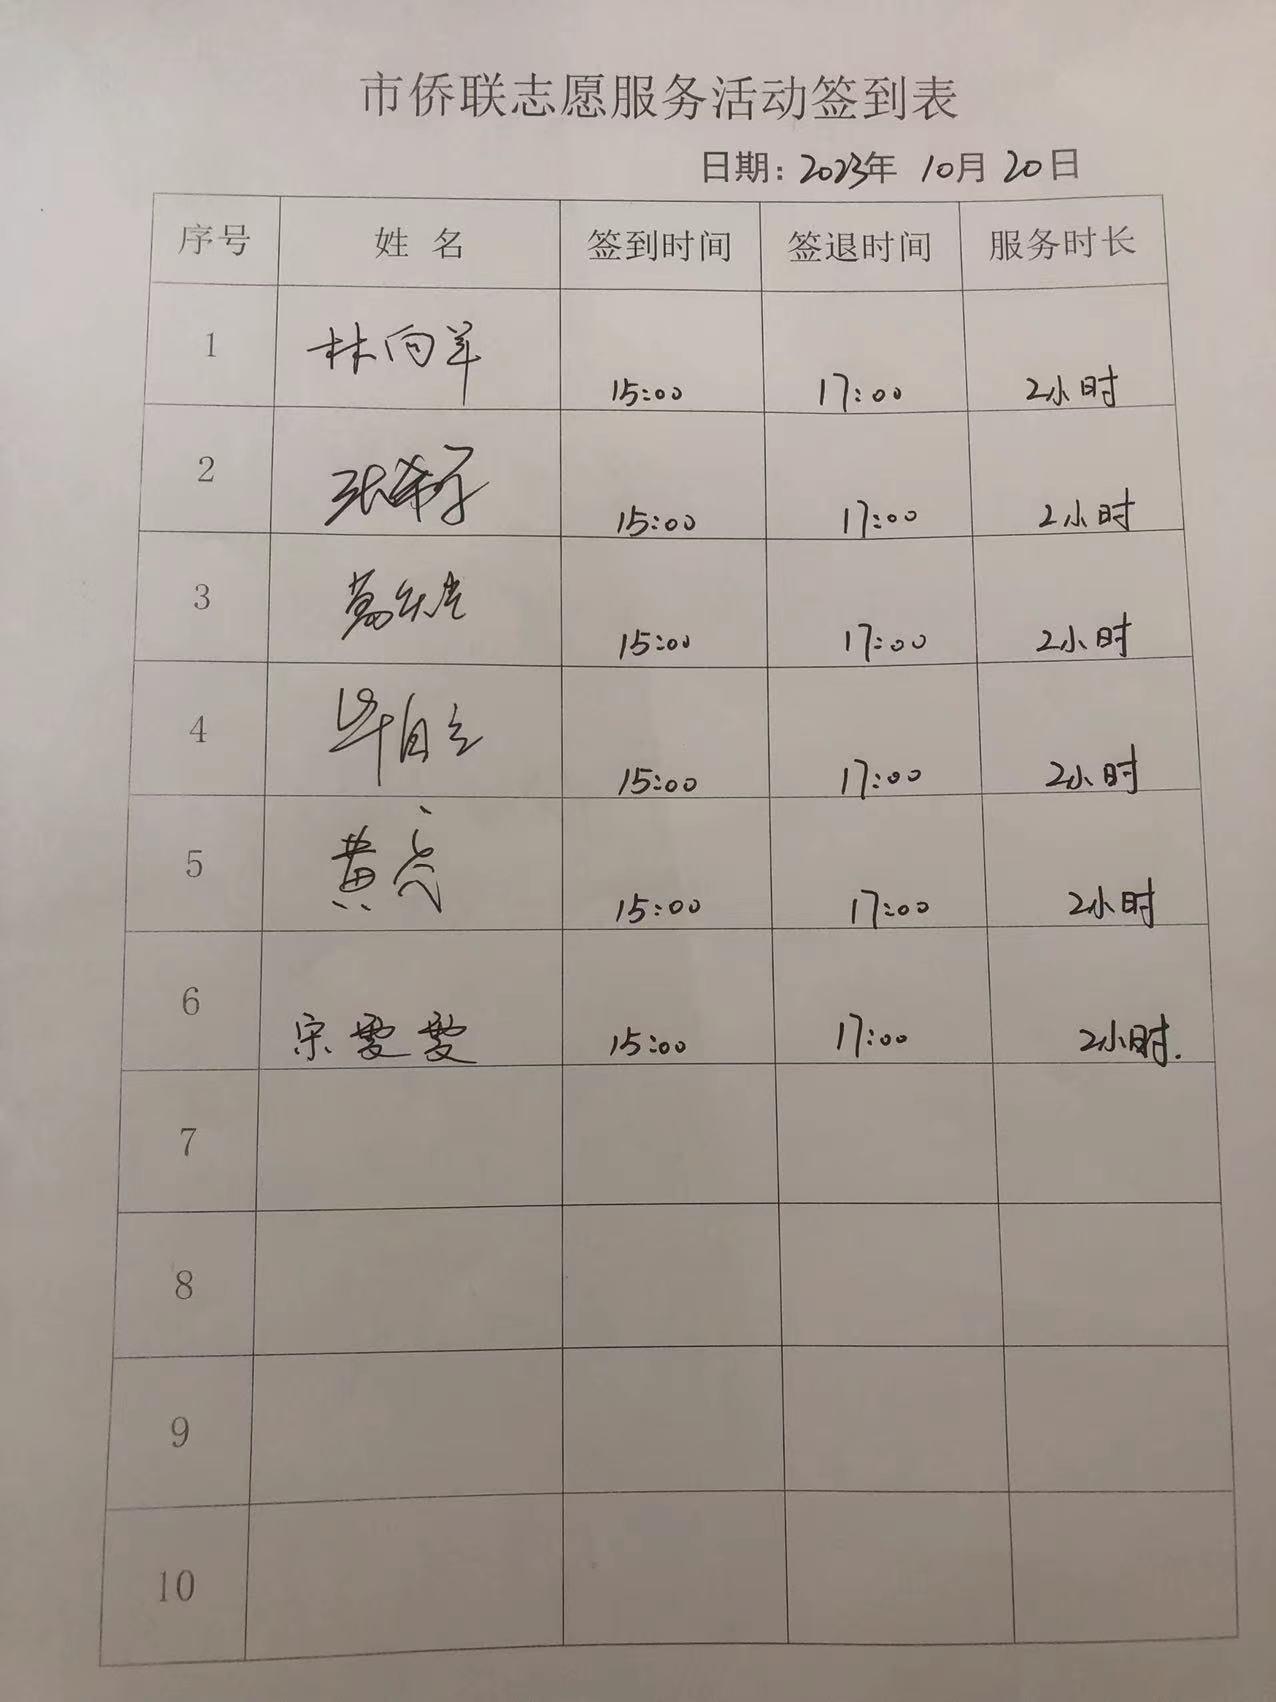 市侨联志愿服务活动签到表
日期：2023年 10月 20日
序号 姓 名 签到时间 签退时间 服务时长
1 林向羊 15:00 17:00 2小时
2 15:00 17:00 2小时
3 15:00 17:00 2小时
4 毕自立 15:00 17:00 2小时
5 黄亮 15:00 17:00 2小时
6 宋雯雯 15:00 17:00 2小时.
7
8
9
10